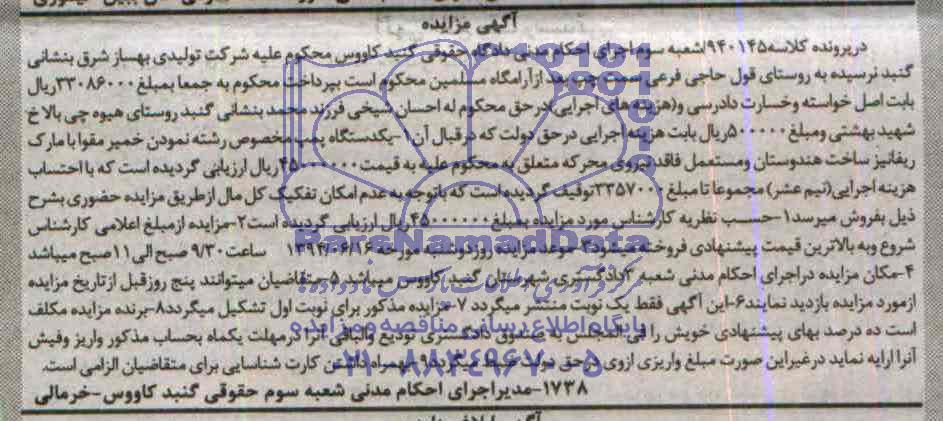 آگهی مزایده
درپرونده کلاسه۹۴۰۱۴۵اشعبه سوم اجرای احکام مدنی دادگاه حقوقی گنبد کاووس محکوم علیه شرکت تولیدی بهساز شرق بنشانی
گنبد نرسیده به روستای قول حاجی فرعی سمت چپ بعد ازآرامگاه مسلمین محکوم است بپرداخت محکوم به جمعا بمبلغ ۳۳۰۸۶۰۰۰ریال
بابت اصل خواسته وخسارت دادرسی و(هزینه های اجرایی)درحق محکوم له احسان شیخی فرزند محمد بنشانی گنبد روستای هیوه چی بالا خ
شهید بهشتی ومبلغ ۵۰۰۰۰۰ریال بابت هزینه اجرایی درحق دولت که درقبال آن۱-یکدستگاه پمپ مخصوص رشته نمودن خمیر مقوا با مارک
ریفانیز ساخت هندوستان ومستعمل فاقد نیروی محرکه متعلق به محکوم علیه به قیمت ۴۵۰۰۰۰۰۰ریال ارزیابی گردیده است که با احتساب
هزینه اجرایی(نیم عشر)مجموعا تا مبلغ ۳۳۵۷۰۰۰توقیف گردیده است که باتوجه به عدم امکان تفکیک کل مال ازطریق مزایده حضوری بشرح
ذیل بفروش میرسد۱-حسب نظریه کارشناس مورد مزایده بمبلغ ۴۵۰۰۰۰۰۰ریال ارزیابی گردیده است۲-مزایده ازمبلغ اعلامی کارشناس
شروع وبه بالاترین قیمت پیشنهادی فروخته میشود۳-موعد مزایده روزدوشنبه مورخه ۱۳۹۴/۰۶/۱۶ ساعت ۹/۳۰ صبح الی ۱۱ صبح میباشد
۴-مکان مزایده دراجرای احکام مدنی شعبه ۳دادگستری شهرستان گنبد کاووس میباشد۵-متقاضیان میتوانند پنج روزقبل ازتاریخ مزایده
ازمورد مزایده بازدید نمایند۶-این آگهی فقط یک نوبت منتشر میگردد ۷-مزایده مذکور برای نوبت اول تشکیل میگردد۸-برنده مزایده مکلف
است ده درصد بهای پیشنهادی خویش را فی المجلس به صندوق دادگستری تودیع والباقی آنرا درمهلت یکماه بحساب مذکور واریز وفیش
آنرا ارایه نماید درغیراین صورت مبلغ واریزی ازوی درحق دولت ضبط میگردد۹-همراه داشتن کارت شناسایی برای متقاضیان الزامی است.
۱۷۳۸-مدیراجرای احکام مدنی شعبه سوم حقوقی گنبد کاووس-خرمالی
ParsNamadData
پایگاه اطلاع رسانی مناقصه و مزایده
۰۲۱-۸۸۳۴۹۶۷۰-۵